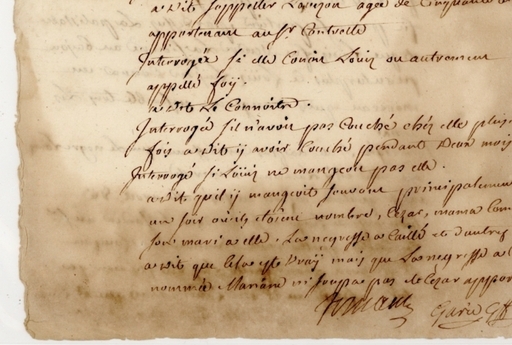 a dit s'appeller Louison agée de Cinquante
appartenant au Sr Controlle
Interrogée si elle Connoit Loüis ou autrement
appellé foÿ.
a dit Le Connoitre.
Interrogé s'il n'avoit pas Couché chéz elle plus
fois a dit ÿ avoir Couché pendant Deux mois
Interrogé si Loüis ne mangeoit pas elle.
a dit qu'il ÿ mangeoit souvant principalemen
au soir ou ils étoient nombre, Cezar, mama
son mari a elle, La negresse a Caillé et d'autres
a dit que Cela est vraÿ mais que La negresse a
nommée Mariane ni soupa pas et Cezar appor
Garic